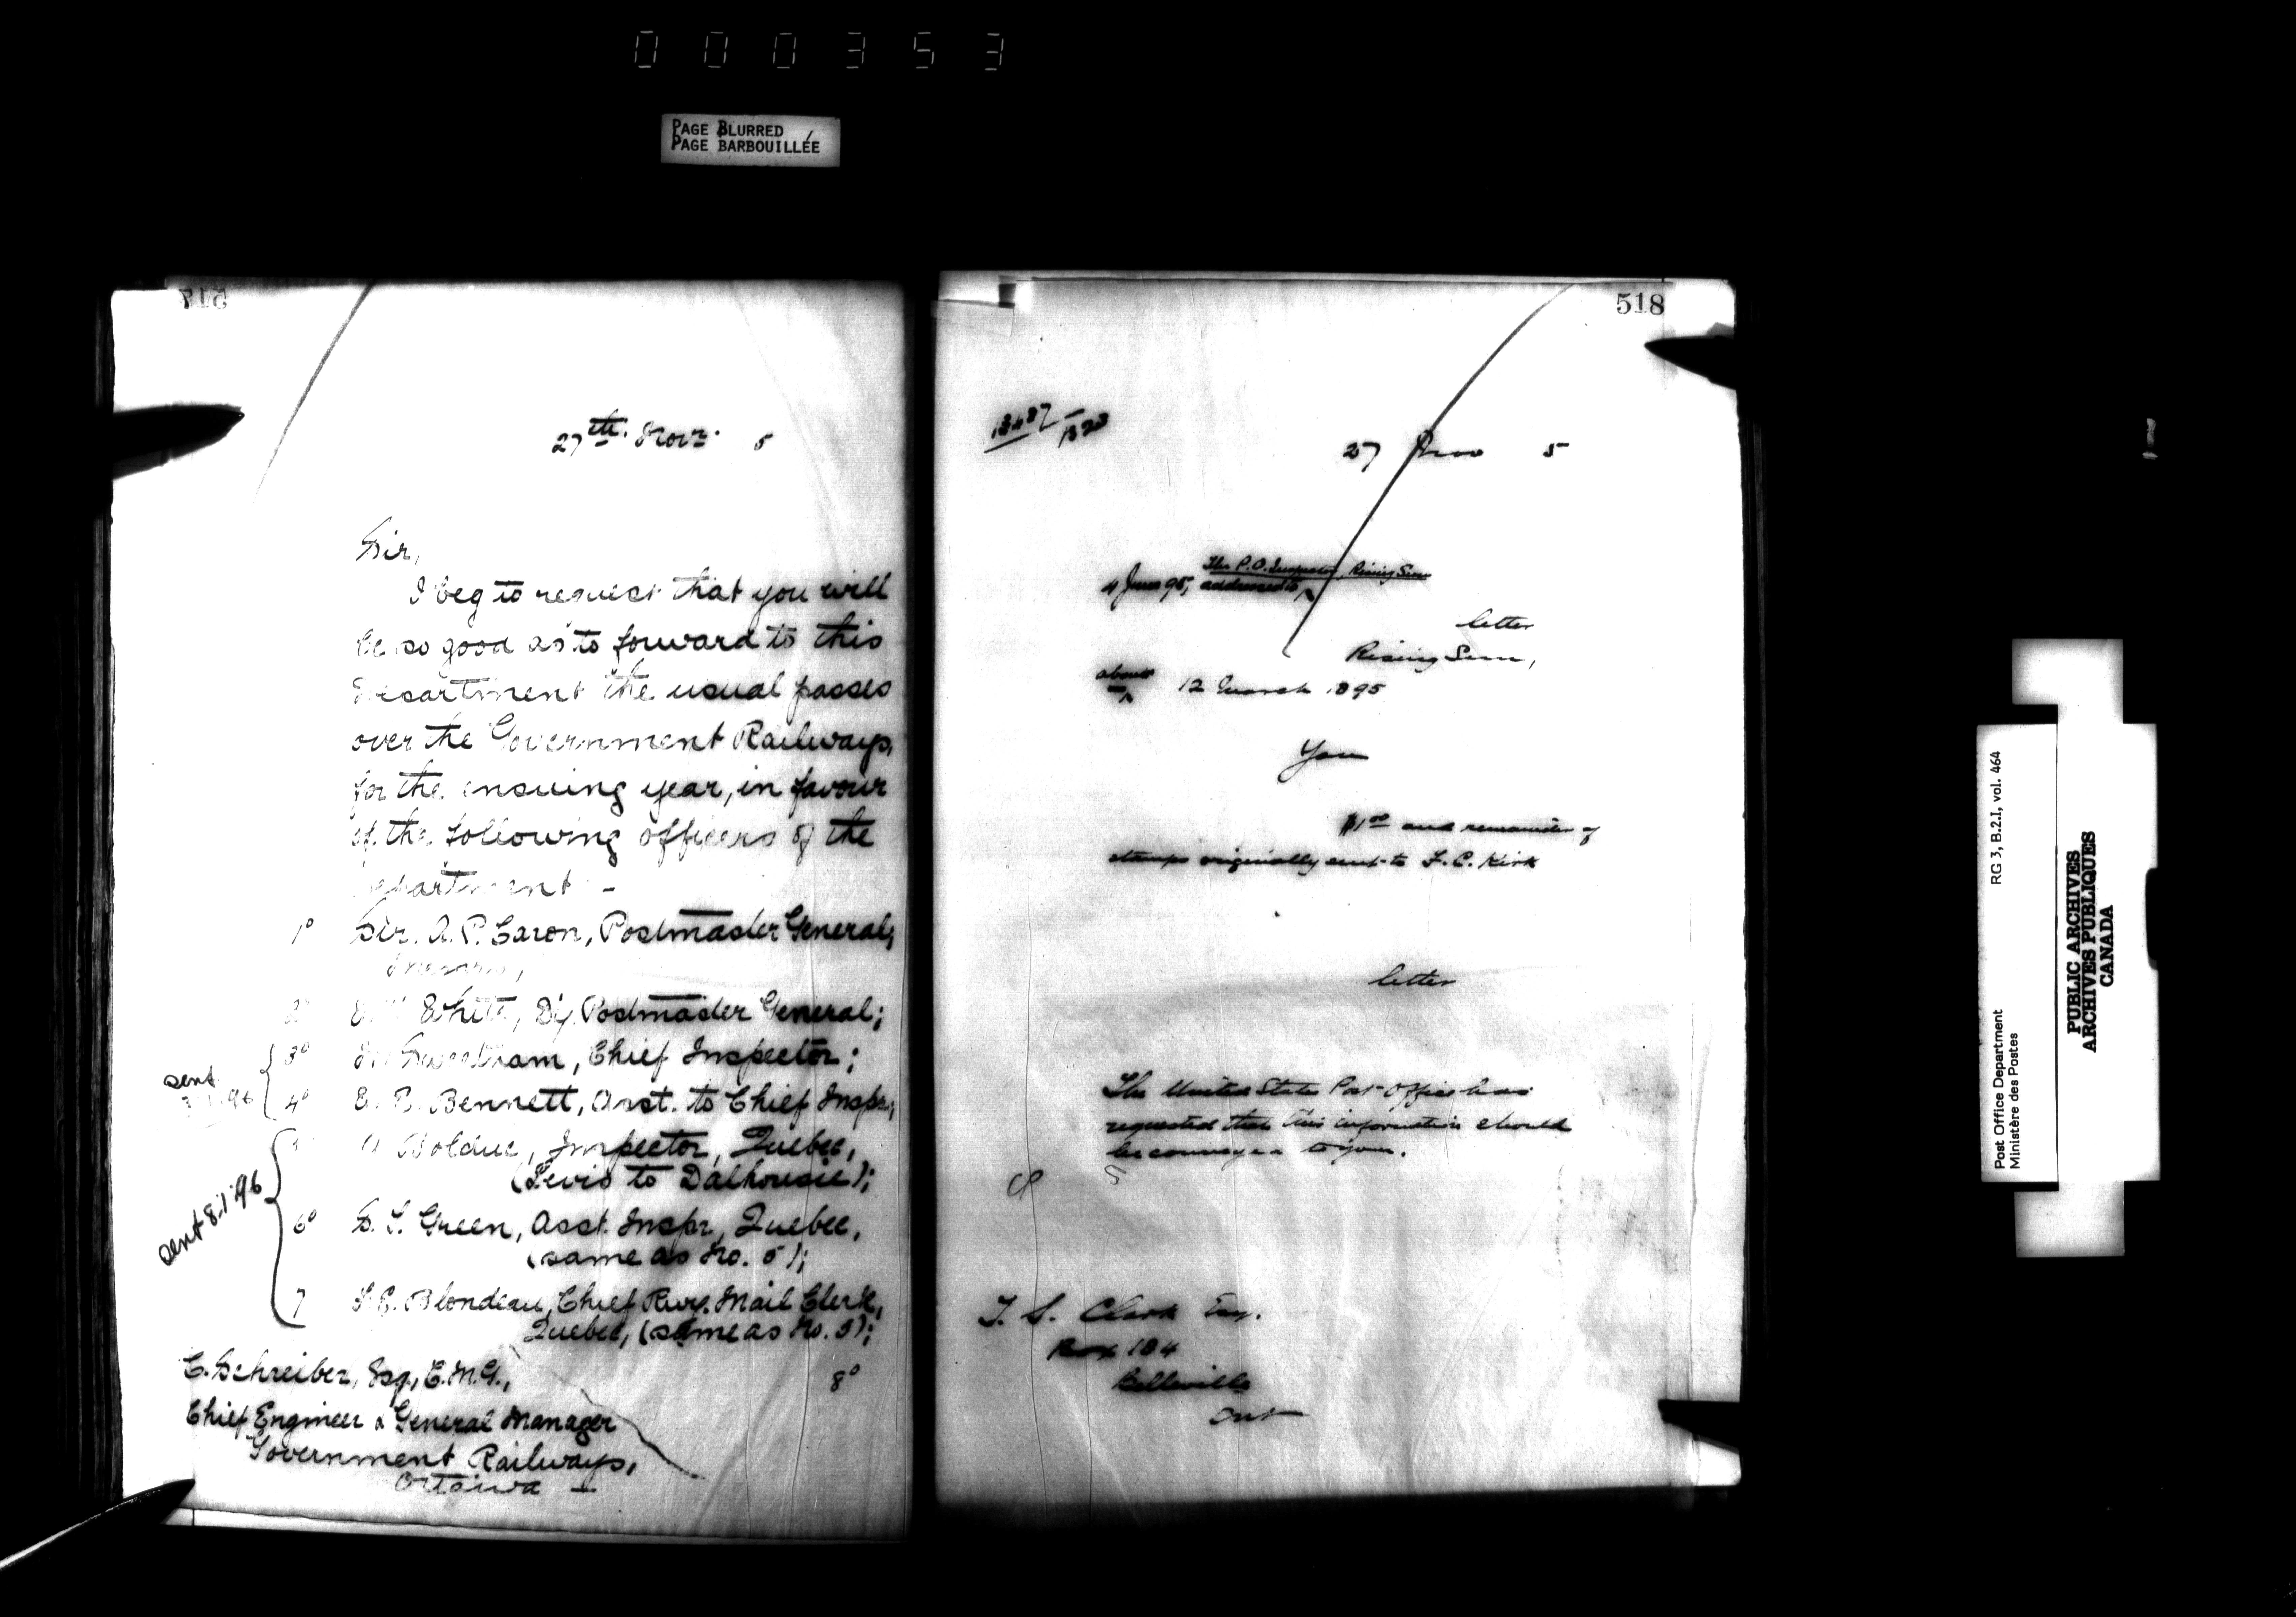 000353
PAGE BLURRED
PAGE BARBOUILLÉE
517
27th. Novr. 5
Sir,
I beg to request that you will
be so good as to forward to this
Department the usual passes
over the Government Railways,
for the ensuing year, in favour
of the following officers of the
Department -
1° Sir. A. P. Caron, Postmaster General,
2° White, Dy. Postmaster General;
3° Sweetnam, Chief Inspector;
4° Bennett, Asst. to Chief Inspr,
sent
3.1.96
Bolduc, Inspector, Quebec,
(Levis to Dalhousie);
6° S. T. Green, Asst. Inspr, Quebec,
(same as No. 5);
7 Blondeau, Chief Rwy. Mail Clerk,
Quebec, (same as No. 5);
sent 8.1.96
C. Schreiber, Esq., C.M.G.,
8°
Chief Engineer & General Manager
Government Railways,
Ottawa
518
27 Nov 5
The P.O. Inspector, Rising Sun
4 June 95, addressed to
letter
Rising Sun,
about
12 March 1895
You
$1.00 and remainder of
stamps originally sent to F. C. Kirk
letter
The United States Post Office has
requested that this information should
be conveyed to you.
T. S. Clark Esq.
Box 184
Belleville
Ont
Post Office Department
Ministère des Postes
RG 3, B.2.I, vol. 464
PUBLIC ARCHIVES
ARCHIVES PUBLIQUES
CANADA